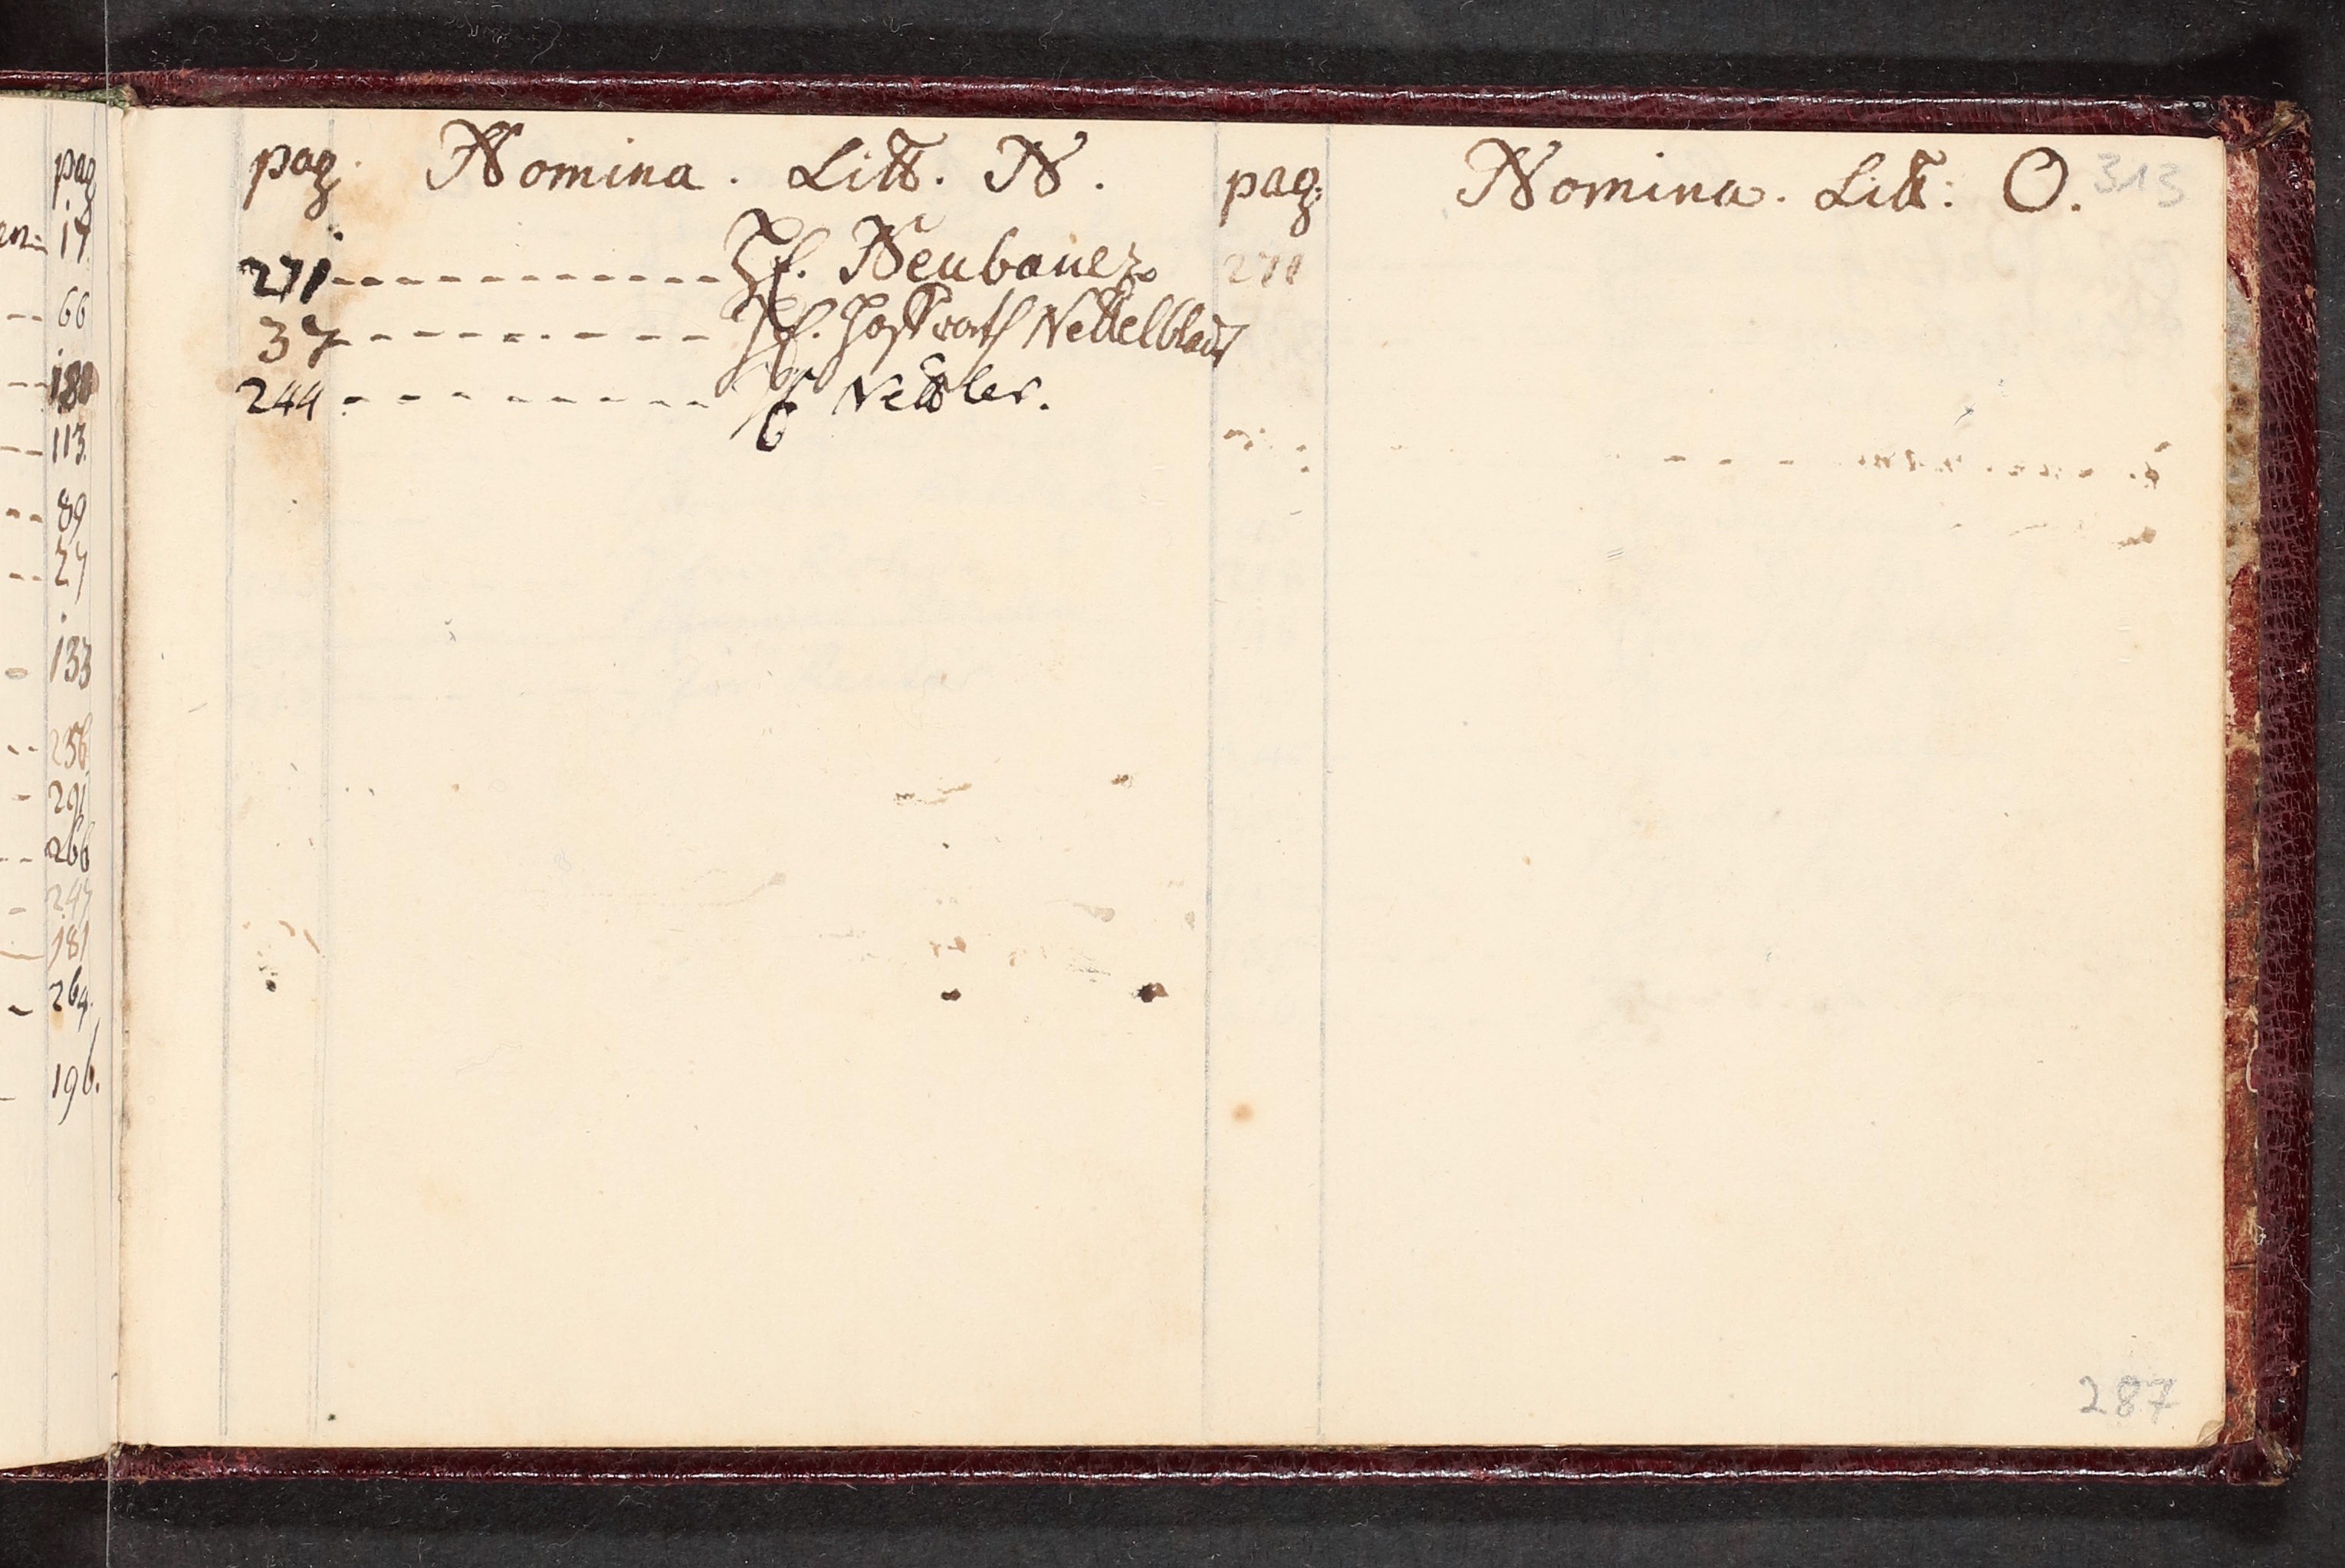 pag
17.
66
180
113.
89
27
133
256
291
266
247
181
264.
196.
pag. Nomina. Litt. N.
271 - - - - - - - - - - - - H. Neubauer.
37 - - - - - - - - - H. Hoffrath Nettelbladt
244 - - - - - - - - - H Nettler.
pag. Nomina. Litt: O. 313
271
287